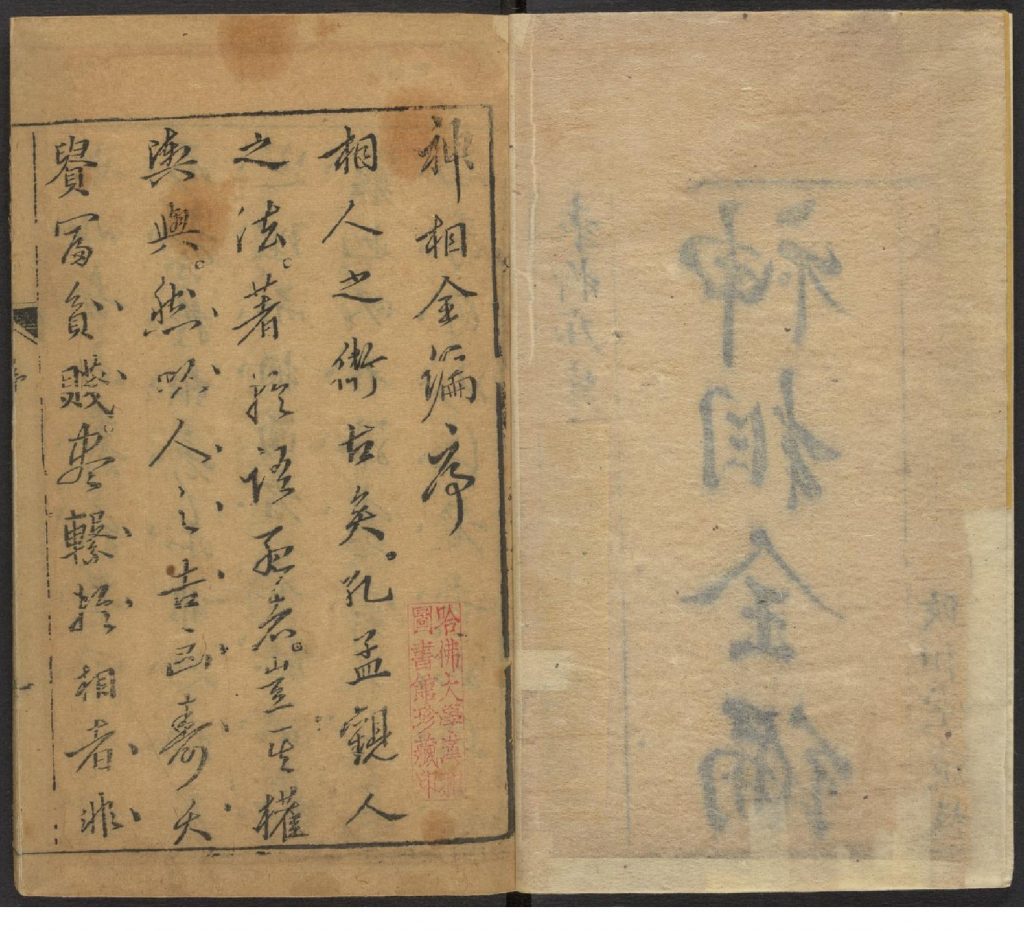 神相全編
神相全編序
相人之術古矣。孔孟觀人
之法。著於語孟者。豈其權
輿與。然人之吉凶壽夭
貴富貧賤。盡繫於相者非
哈佛大學漢和
圖書館珍藏印